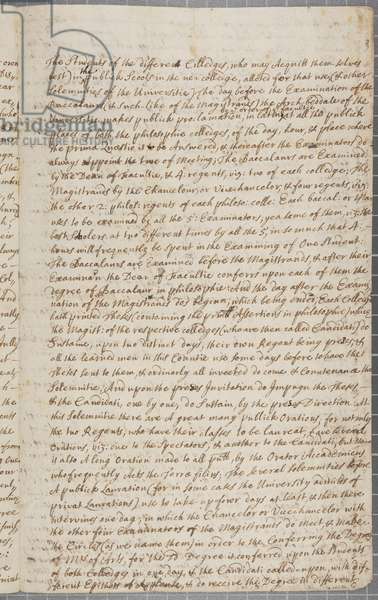 3
The Students of the different Colledges, who may Acquitt them selves
best) in the publick Scools in the new colledge, allotted for that use, & other
solemnities of the Universitie) The day before the Examination of the
Baccalaurs, & such like of the Magistrands the Arch beddale of the
University makes publick proclamation, in all the publick
places of both the philosophie colledges, of the day, hour, & place where
the private Questio is to be Answered, & thereafter the Examinators do
always appoint the time of Meeting; The Baccalaurs are Examined
by the Dean of Facultie, & 4. regents, viz: two of each colledge; The
Magistrands by the Chancelour or Vicechancelor, & four regents, viz:
the other 2: philos: regents of each philoso: colle: Each Baccal: or Mag-
to be examined by all the 5: Examinators, yea some of them, viz: the
best Scholers, at two different times by all the 5; in so much that 4.
hours will frequently be spent in the Examining of One Student:
The Baccalaurs are Examined before the Magistrands, & after their
Examination the Dean of Facultie conferrs upon each of them the
Degree of Baccalaur in philosophie: And the day after the Exami-
nation of the Magistrands being over, Each Colledge
hath printed Theses (containing the Assertions in philosophie) which
the Magist: of the respective colledges (who are then called Candidati) do
Sustaine, upon two distinct days, their own Regent being
all the learned men in this Countrie use some days before to have the
Theses sent to them, & ordinarly all invited do come & Countenance the
Solemnitie, And upon the Invitation do Impugn the Theses
& the Candidati, one by one, do Sustain, by the Direction. At
this Solemnitie there are a great many publick Orations, for not only
the two Regents, who have their classes to be Laureat, have several
Orations, viz: one to the Spectators, & another to the Candidati, but there
is also A long Oration made to all by the Orator Academicus
who frequently Acts the Terræ filius; The several Solemnities before
A publick Laureation (for in some cases the University admitts of
privat Laureations) use to take up four days at least, & then there
interviens one day; in which the Chancelor or Vicechancelor with
the other four Examinators of the Magistrands do meet, & make
the Circles (as we name them) in order to the Conferring the Degree
of Mr of Arts, for the Degree is conferred upon the Students
of both Colledges in one day, & the Candidati called upon, with dif-
ferent Epithets of Applause, & do receive the Degree in different
bridgeman
images